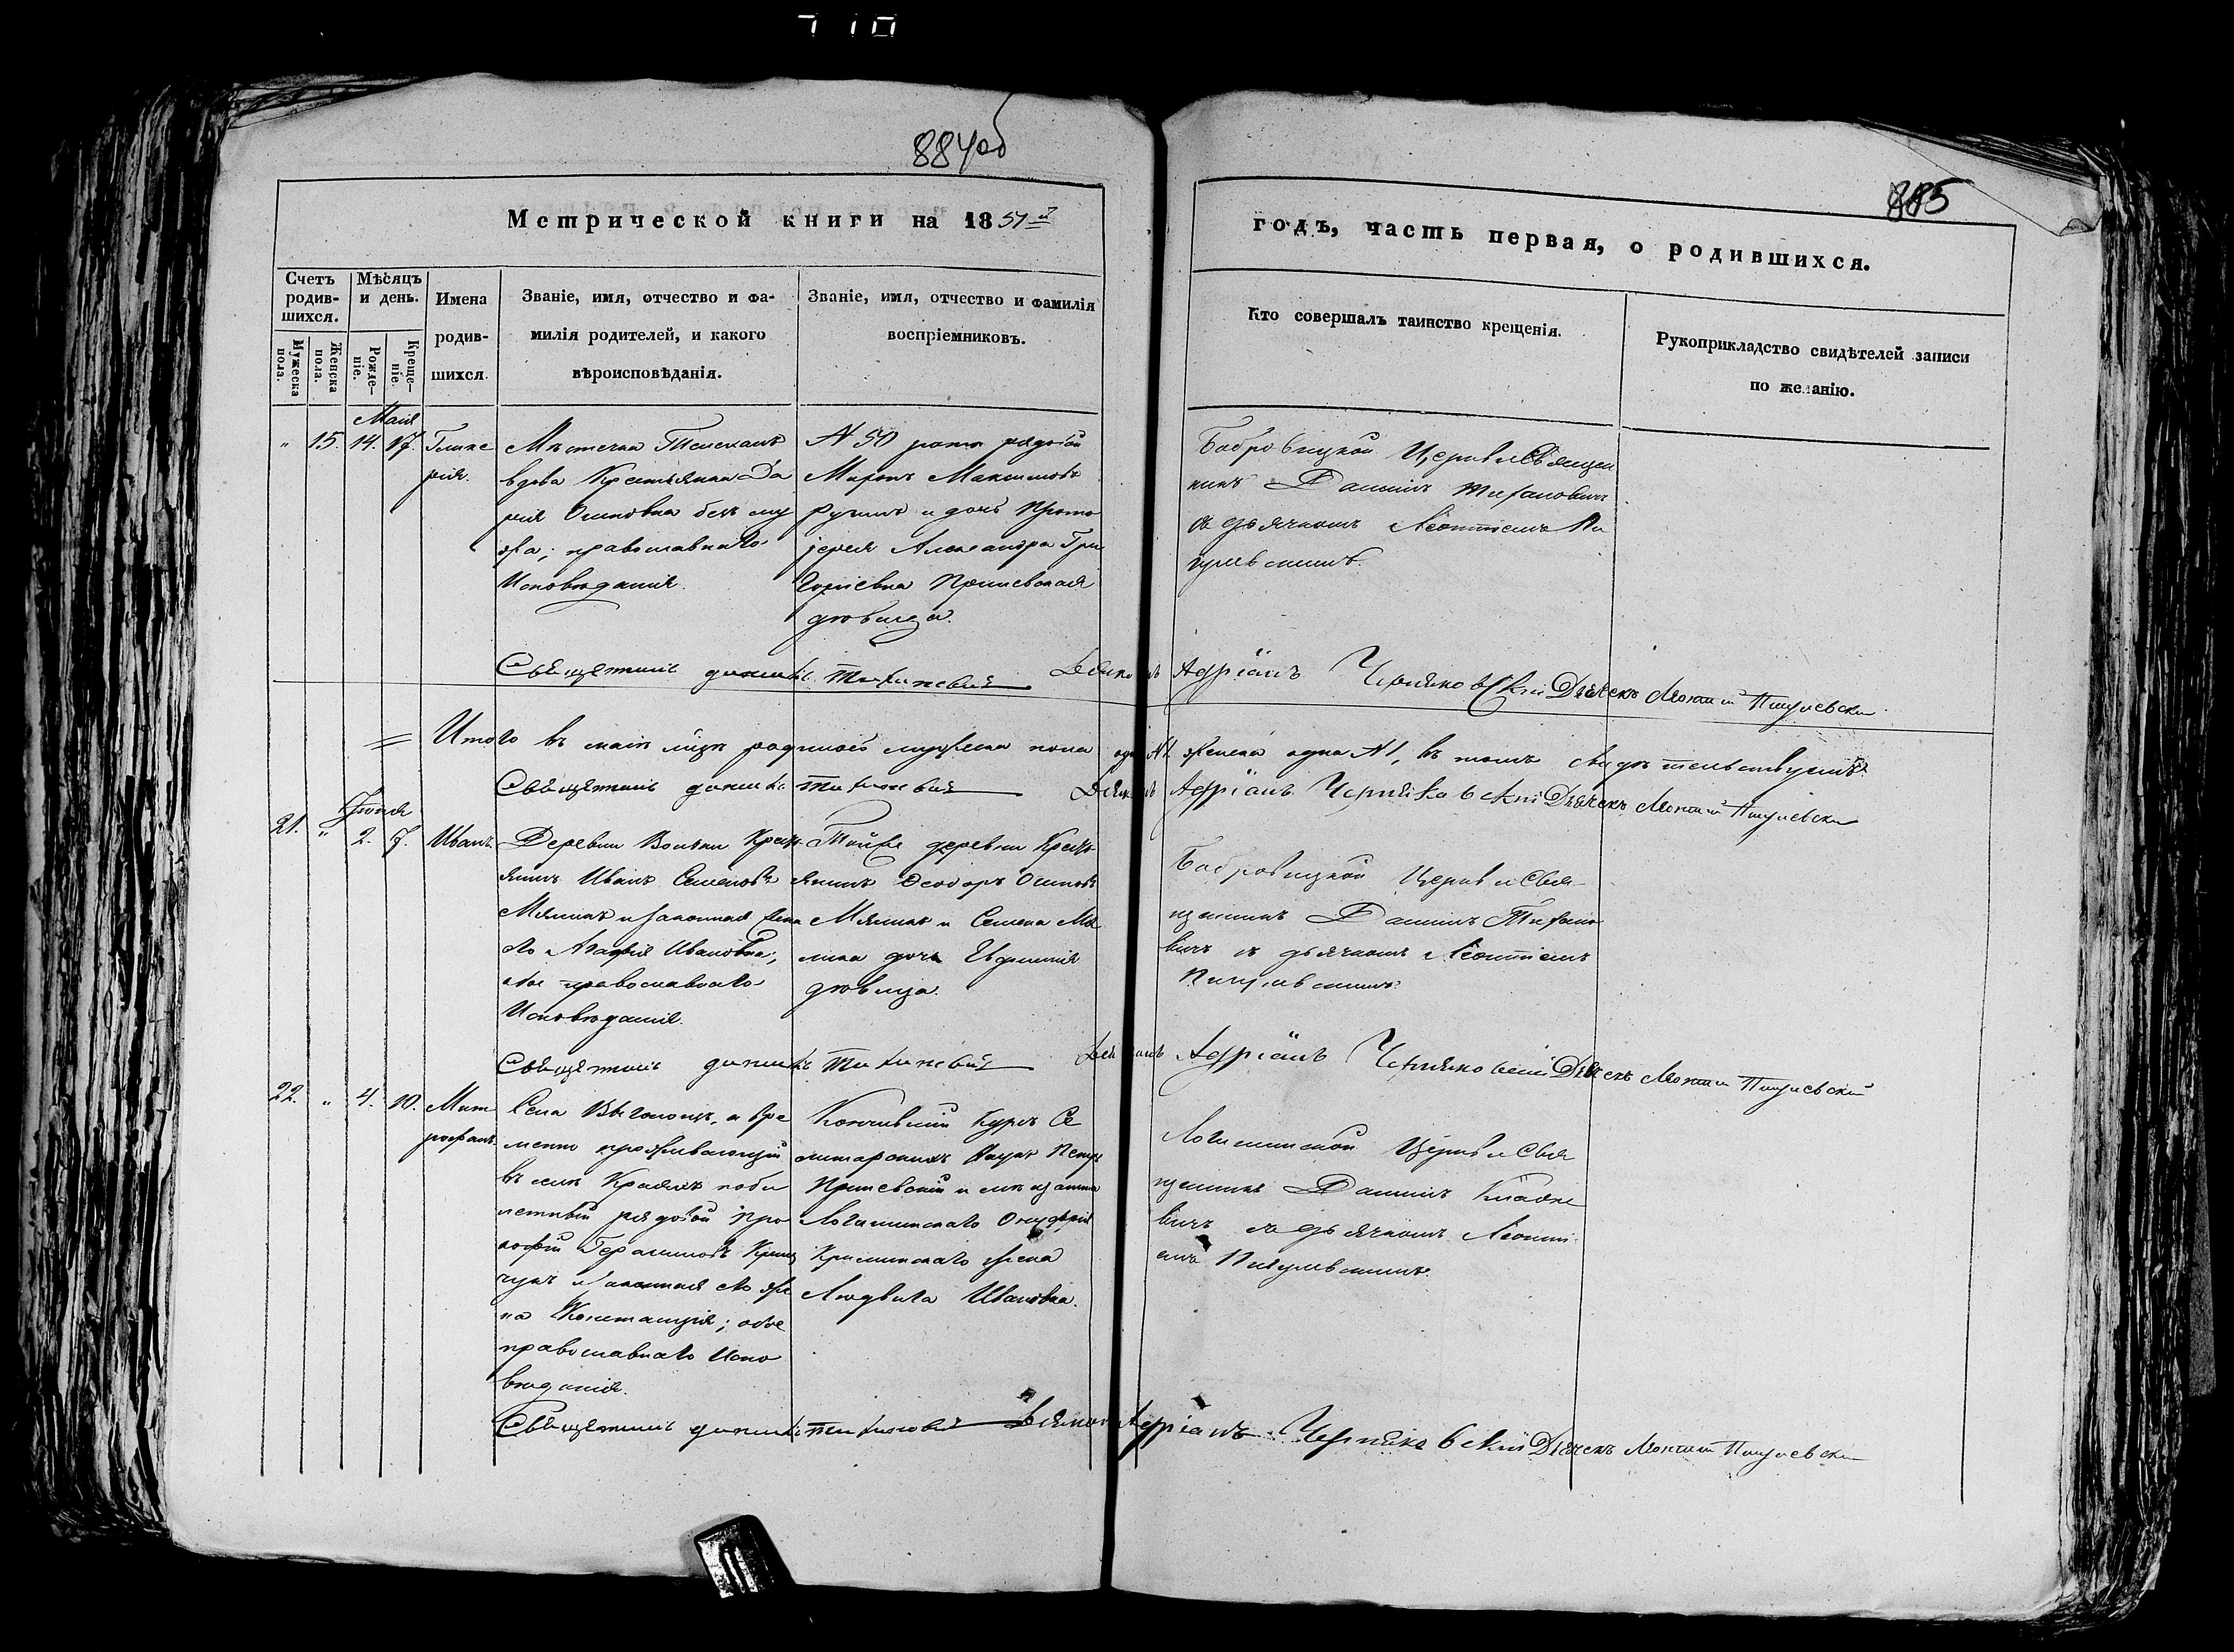 710
884об
885
Метрической книги на 1851й
годъ, часть первая, о родившихся.
Счетъ родив-шихся.
Мѣсяцъ и день.
Имена родив-шихся.
Званіе, имя, отчество и фа-
милія родителей, и какого
вѣроисповѣданія.
Званіе, имя, отчество и фамилія
воспріемниковъ.
Кто совершалъ таинство крещенія.
Рукоприкладство свидѣтелей записи
по желанію.
Мужеска пола.
Женска пола.
Рожде-ніе.
Креще-ніе.
Маія
" 15. 14. 17. Глике
рія.
Мѣстечка Телеханъ
вдова Крестьянка Да
рія Осиповна безъ му
жа; православнаго
Исповѣданія.
№ 50 роты рядовой
Миронъ Максимовъ
и дочь Прото
іерея Александра Гри
горіевна
дѣвица.
Бобровицкой Церкви Священ
никъ Даниилъ Тиханович
съ дьячкомъ Леонтіемъ Пи
гулевскимъ.
Священникъ Данилъ Тихановичь Діаконъ Адріанъ Черняковскій Дьячекъ Леонтій Пигулевскій
Итого въ маіѣ мцѣ родилось мужеска пола одинъ №1 женска одна №1, въ томъ свидѣтельствуемъ.
Священникъ Данилъ Тихановичь Діаконъ Адріанъ Черняковскій Дьячекъ Леонтій Пигулевскій
Іюня
21. " 2. 7. Иванъ.
Деревни Вольки Крест
янинъ Иванъ Семеновъ
и законная жена
его Агафія Ивановна;
обое православнаго
Исповѣданія.
Тойже деревни Крест
янинъ Ѳеодоръ Осиповъ
и Семена
дочь Евфимія
дѣвица.
Бобровицкой Церкви Свя
щенникъ Даниилъ Тихано
вичъ съ дьячкомъ Леонтіемъ
Пигулевскимъ.
Священникъ Данилъ Тихановичь Діаконъ Адріанъ Черняковскій Дьячекъ Леонтій Пигулевскій
22. " 4. 10. Мит
рофанъ.
Села Выгонощъ, а вре
менно проживающій
въ селѣ Краяхъ
рядовой Про
кофій Герасимовъ
и законная его же
на Констанція; обое
православнаго Испо
вѣданія.
Кончившій Курсъ Се
минарскихъ Наукъ Петръ
и мѣщанина
Логишинскаго Онуфрія
жена
Людвига Ивановна.
Логишинской Церкви Свя
щенникъ Даниилъ
вичъ съ дьячкомъ Леонті
емъ Пигулевскимъ.
Священникъ Данилъ Тихановичь Діаконъ Адріанъ Черняковскій Дьячекъ Леонтій Пигулевскій